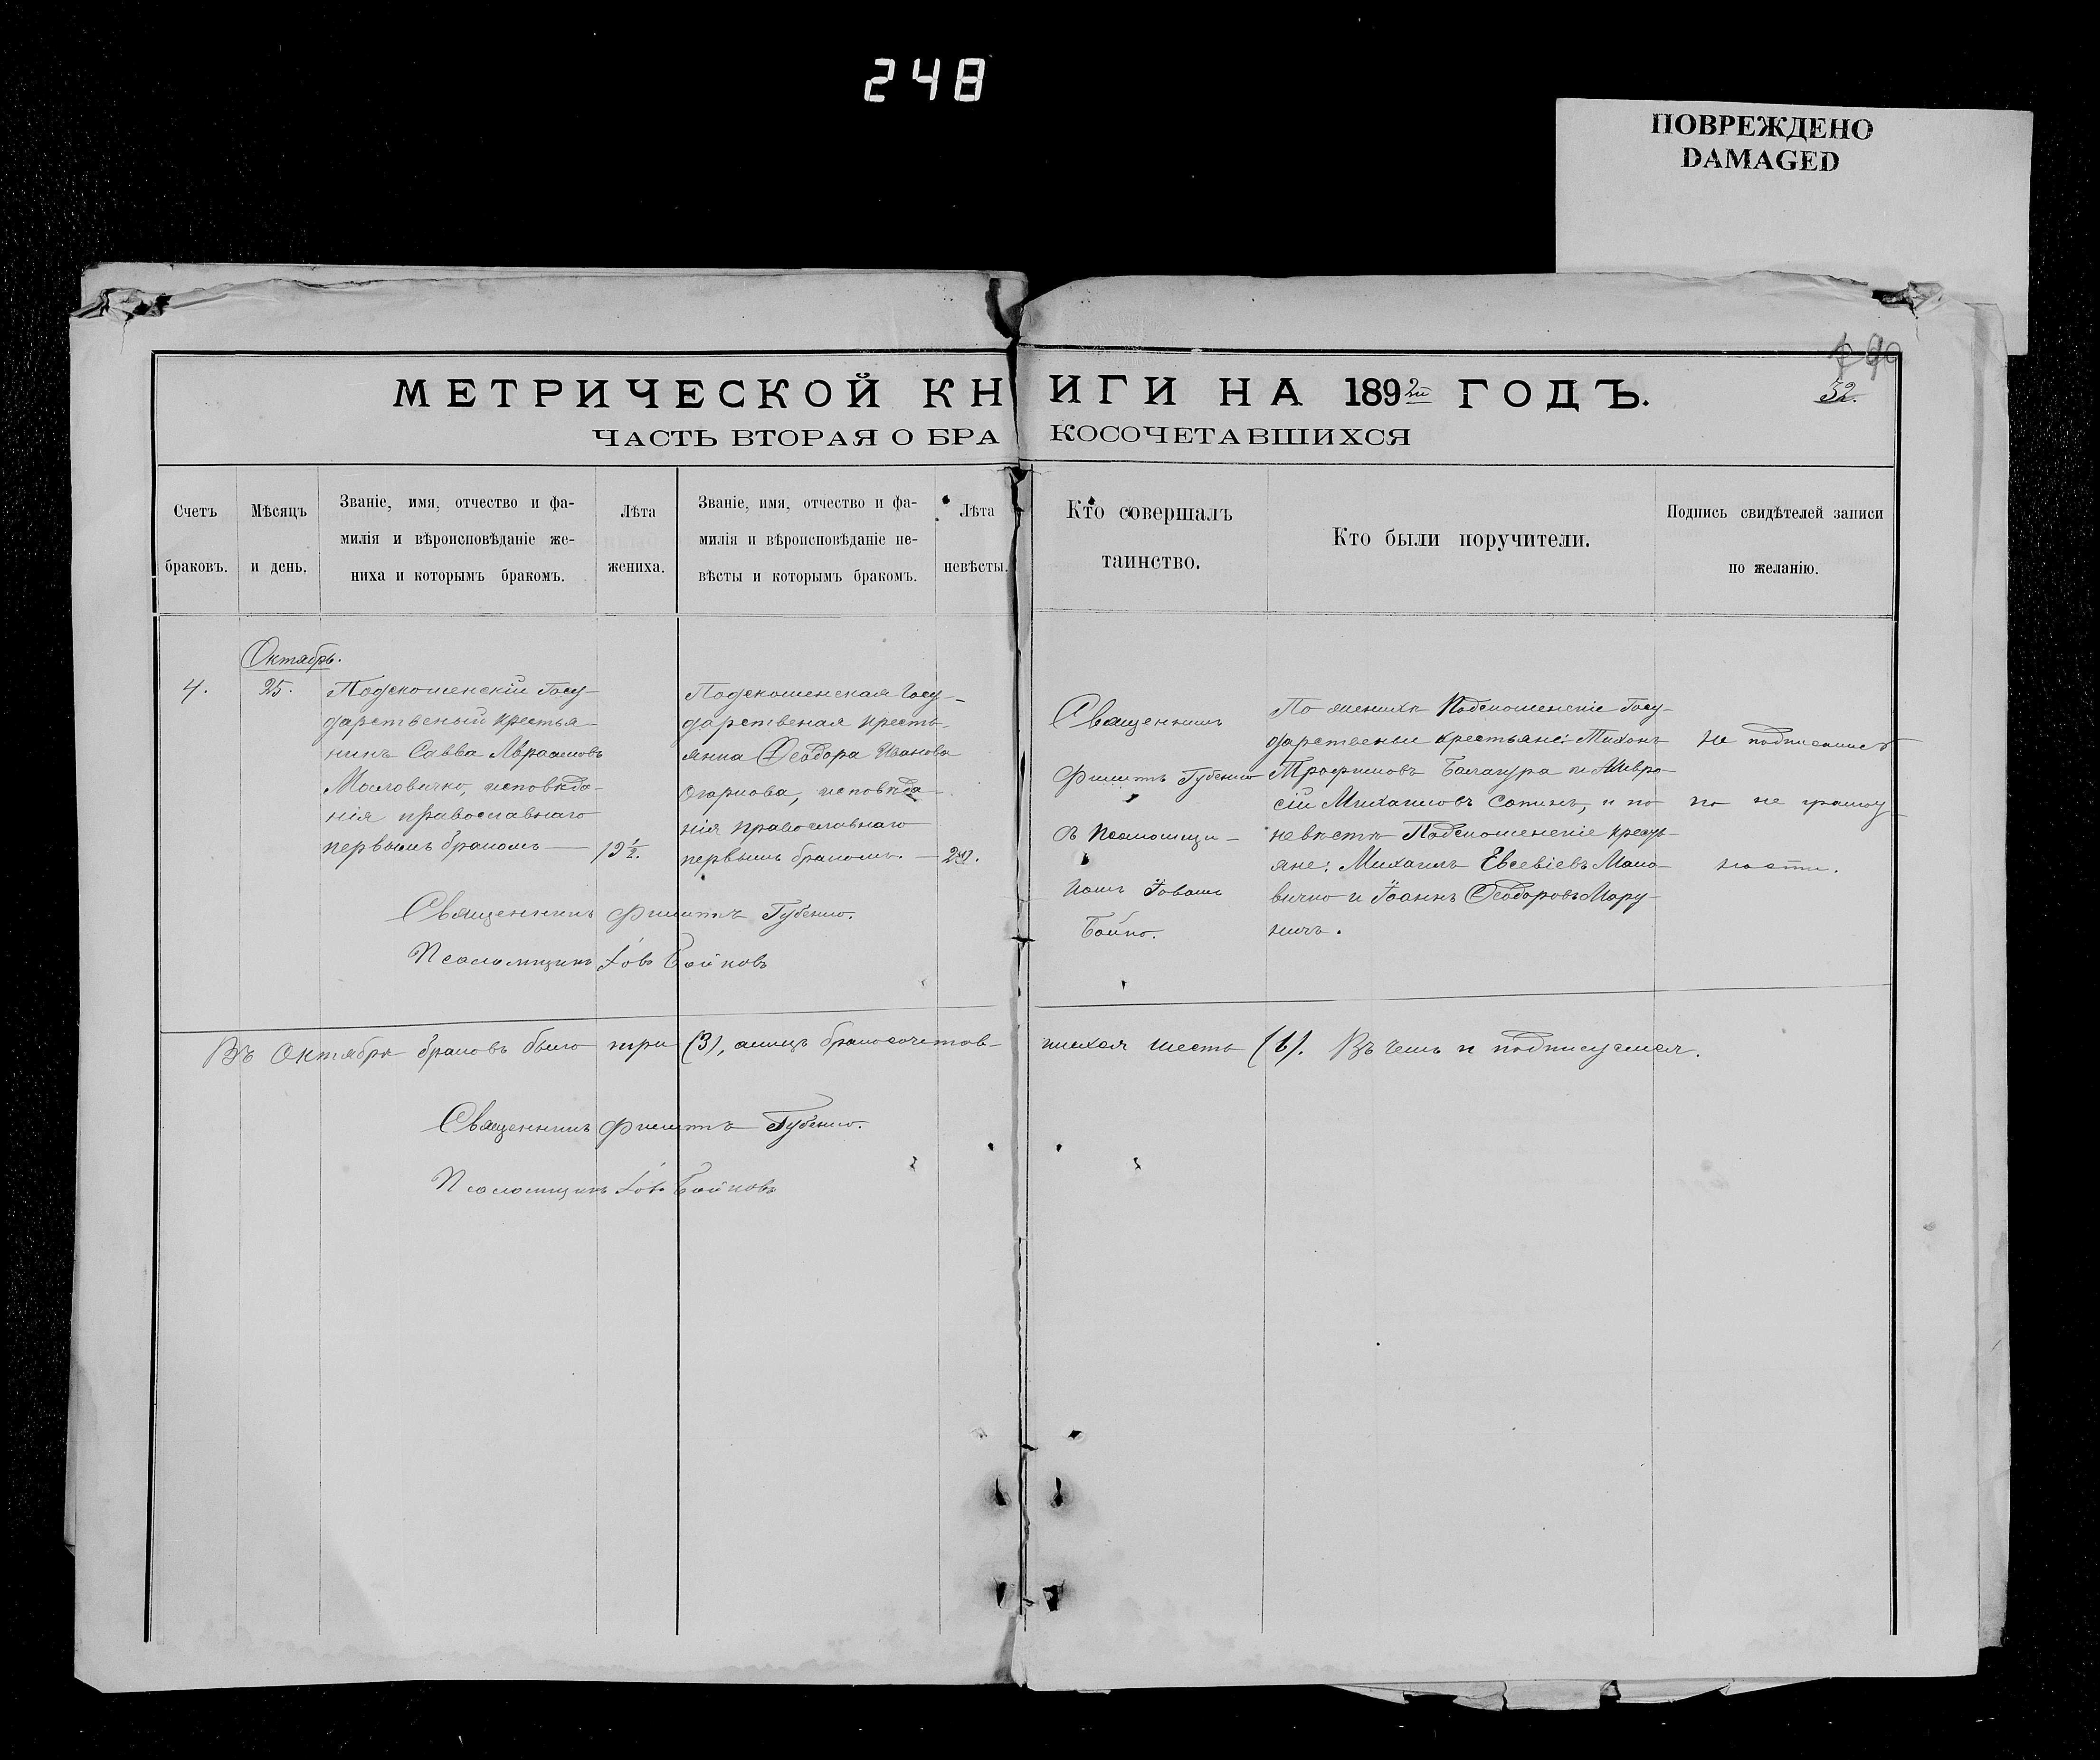 248
ПОВРЕЖДЕНО
DAMAGED
МЕТРИЧЕСКОЙ КНИГИ НА 1892й ГОДЪ.
32.
ЧАСТЬ ВТОРАЯ О БРАКОСОЧЕТАВШИХСЯ
Счетъ браковъ.
Мѣсяцъ и день.
Званіе, имя, отчество и фа-
милія и вѣроисповѣданіе же-
ниха и которымъ бракомъ.
Лѣта жениха.
Званіе, имя, отчество и фа-
милія и вѣроисповѣданіе не-
вѣсты и которымъ бракомъ.
Лѣта невѣсты.
Кто совершалъ
таинство.
Кто были поручители.
Подпись свидѣтелей записи
по желанію.
Октябрь.
4.
25.
Подскошенскій Госу-
дарственый крестья-
нинъ Савва Авраамовъ
исповѣда-
нія православнаго
первымъ бракомъ
19½.
Подскошенская Госу-
дарственая кресть-
янка Ѳеодора Иванова
Огаркова, исповѣда-
нія православнаго
первымъ бракомъ.
20.
Священникъ
Филиппъ Губенко
съ Псаломщи-
комъ Іовомъ
Бойко.
По женихѣ Подскошенскіе Госу-
дарственые крестьяне: Тихонъ
Трофимовъ Балагура и Амвро-
сій Михаиловъ и по
невѣстѣ Подскошенскіе кресть-
яне: Михаилъ Евсевіевъ
и Іоаннъ Ѳеодоровъ Мару-
ничъ.
Не подписались
по не грамот
ности.
Священникъ Филиппъ Губенко.
Псаломщикъ Іовъ Бойковъ
Въ Октябрѣ браковъ было три (3), а лицъ бракосочетав-
шихся шесть (6). Въ чемъ и подписуемся.
Священникъ Филиппъ Губенко.
Псаломщикъ Іовъ Бойковъ